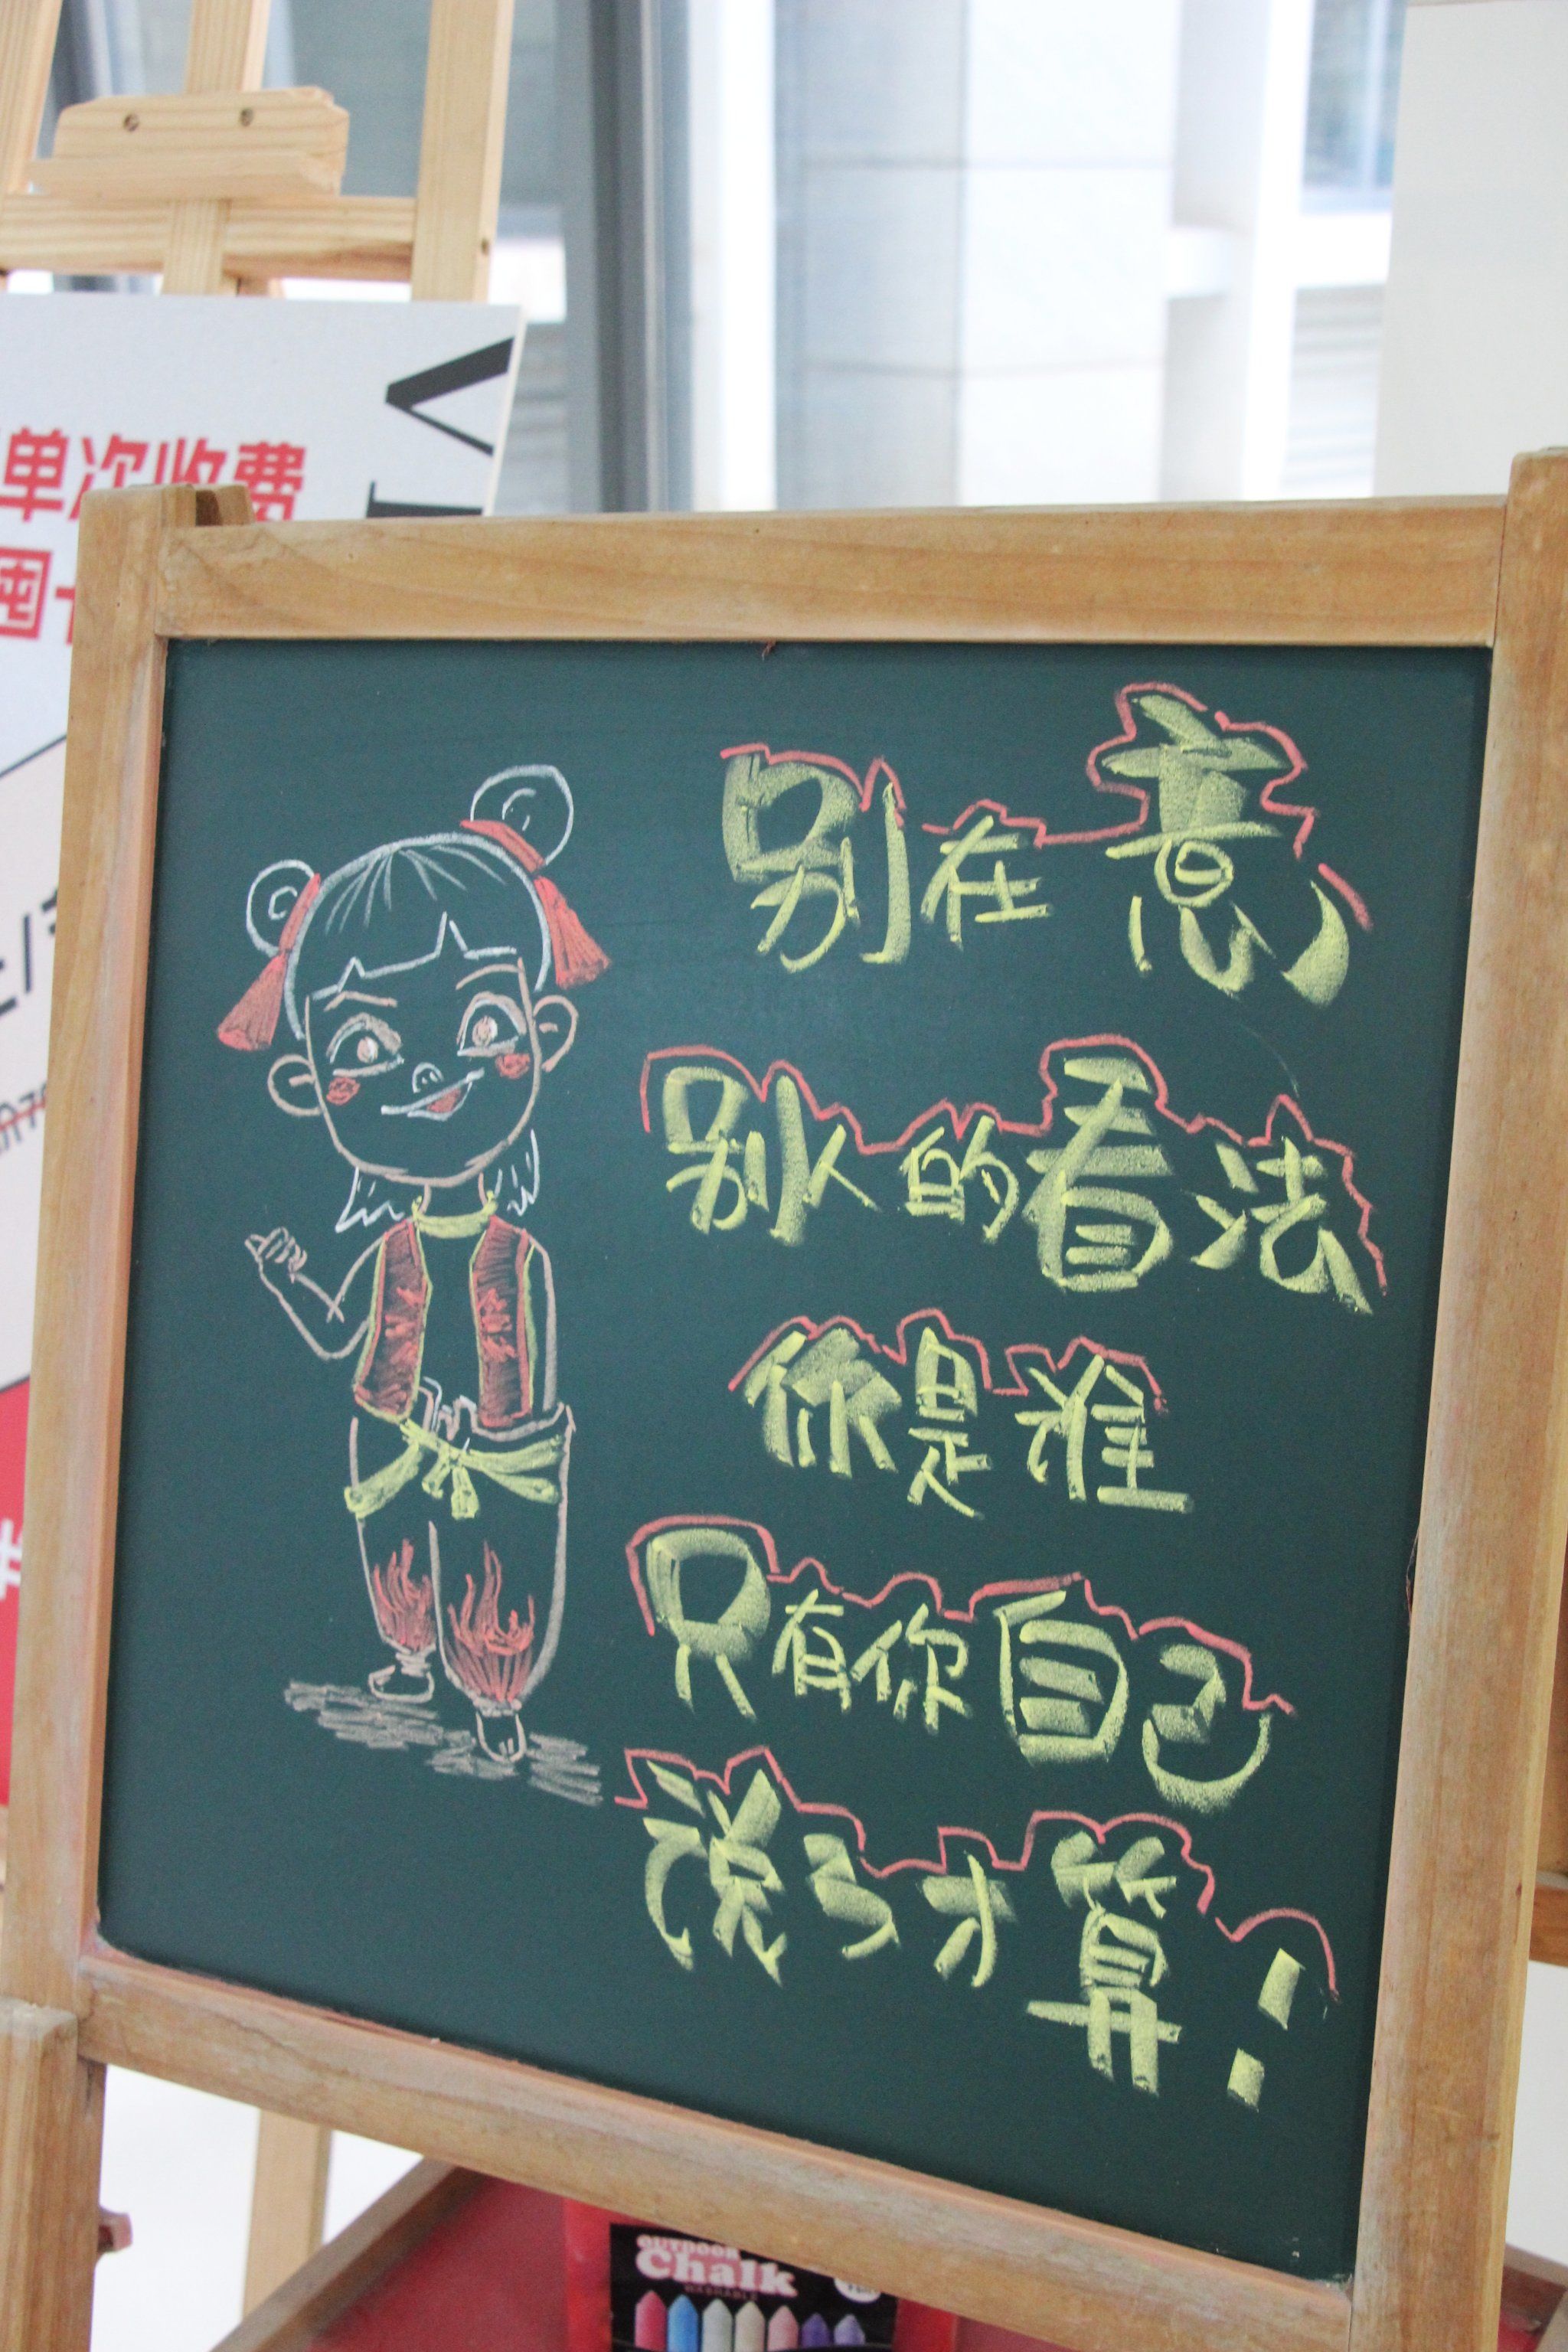 单次收费
别在意
别人的看法
你是谁
只有你自己
说了才算!
OUTDOOR
Chalk
WASHABLE